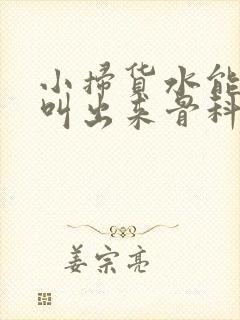 小掃货水能
叫出来骨科
姜宗亮